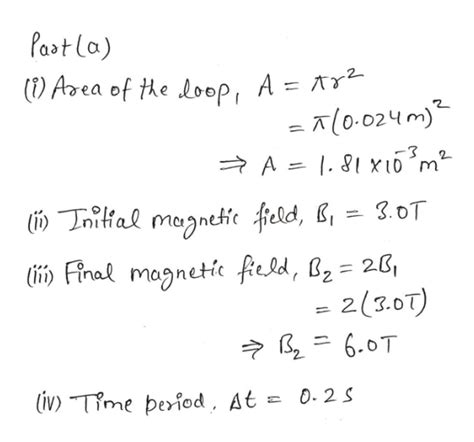 Part(a)
(i) Area of the loop, A = πr²
= π(0.024m)²
⇒ A = 1.81 x10⁻³m²
(ii) Initial magnetic field, B₁ = 3.0T
(iii) Final magnetic field, B₂ = 2B₁
= 2(3.0T)
⇒ B₂ = 6.0T
(iv) Time period, Δt = 0.2s